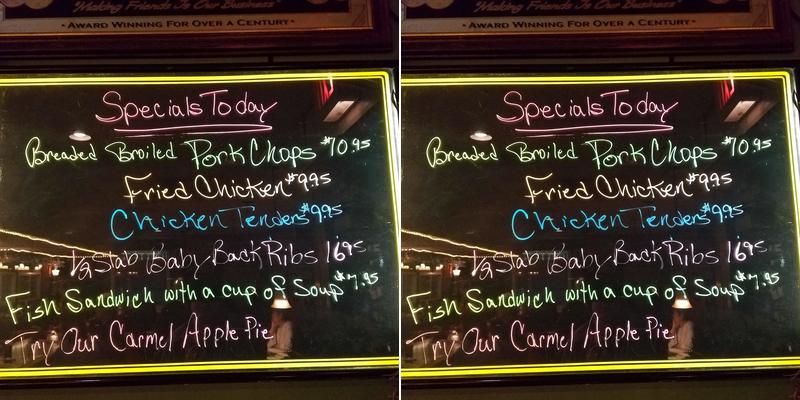 "Making Friends Is Our Business"
AWARD WINNING FOR OVER A CENTURY
Specials Today
Breaded Broiled Pork Chops $10.95
Fried Chicken $9.95
Chicken Tenders $9.95
1/2 Slab Baby Back Ribs 16.95
Fish Sandwich with a cup of Soup $7.95
Try Our Carmel Apple Pie
"Making Friends Is Our Business"
AWARD WINNING FOR OVER A CENTURY
Specials Today
Breaded Broiled Pork Chops $10.95
Fried Chicken $9.95
Chicken Tenders $9.95
1/2 Slab Baby Back Ribs 16.95
Fish Sandwich with a cup of Soup $7.95
Try Our Carmel Apple Pie